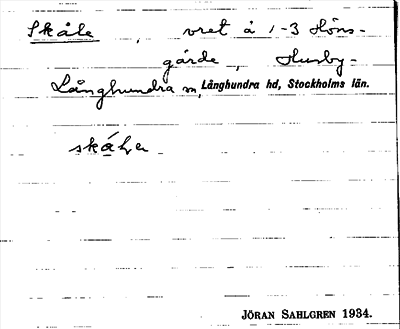 Skåle, vret å 1-3 Höns-
gärde, Husby-
Långhundra sn, Långhundra hd, Stockholms län.
JÖRAN SAHLGREN 1934.